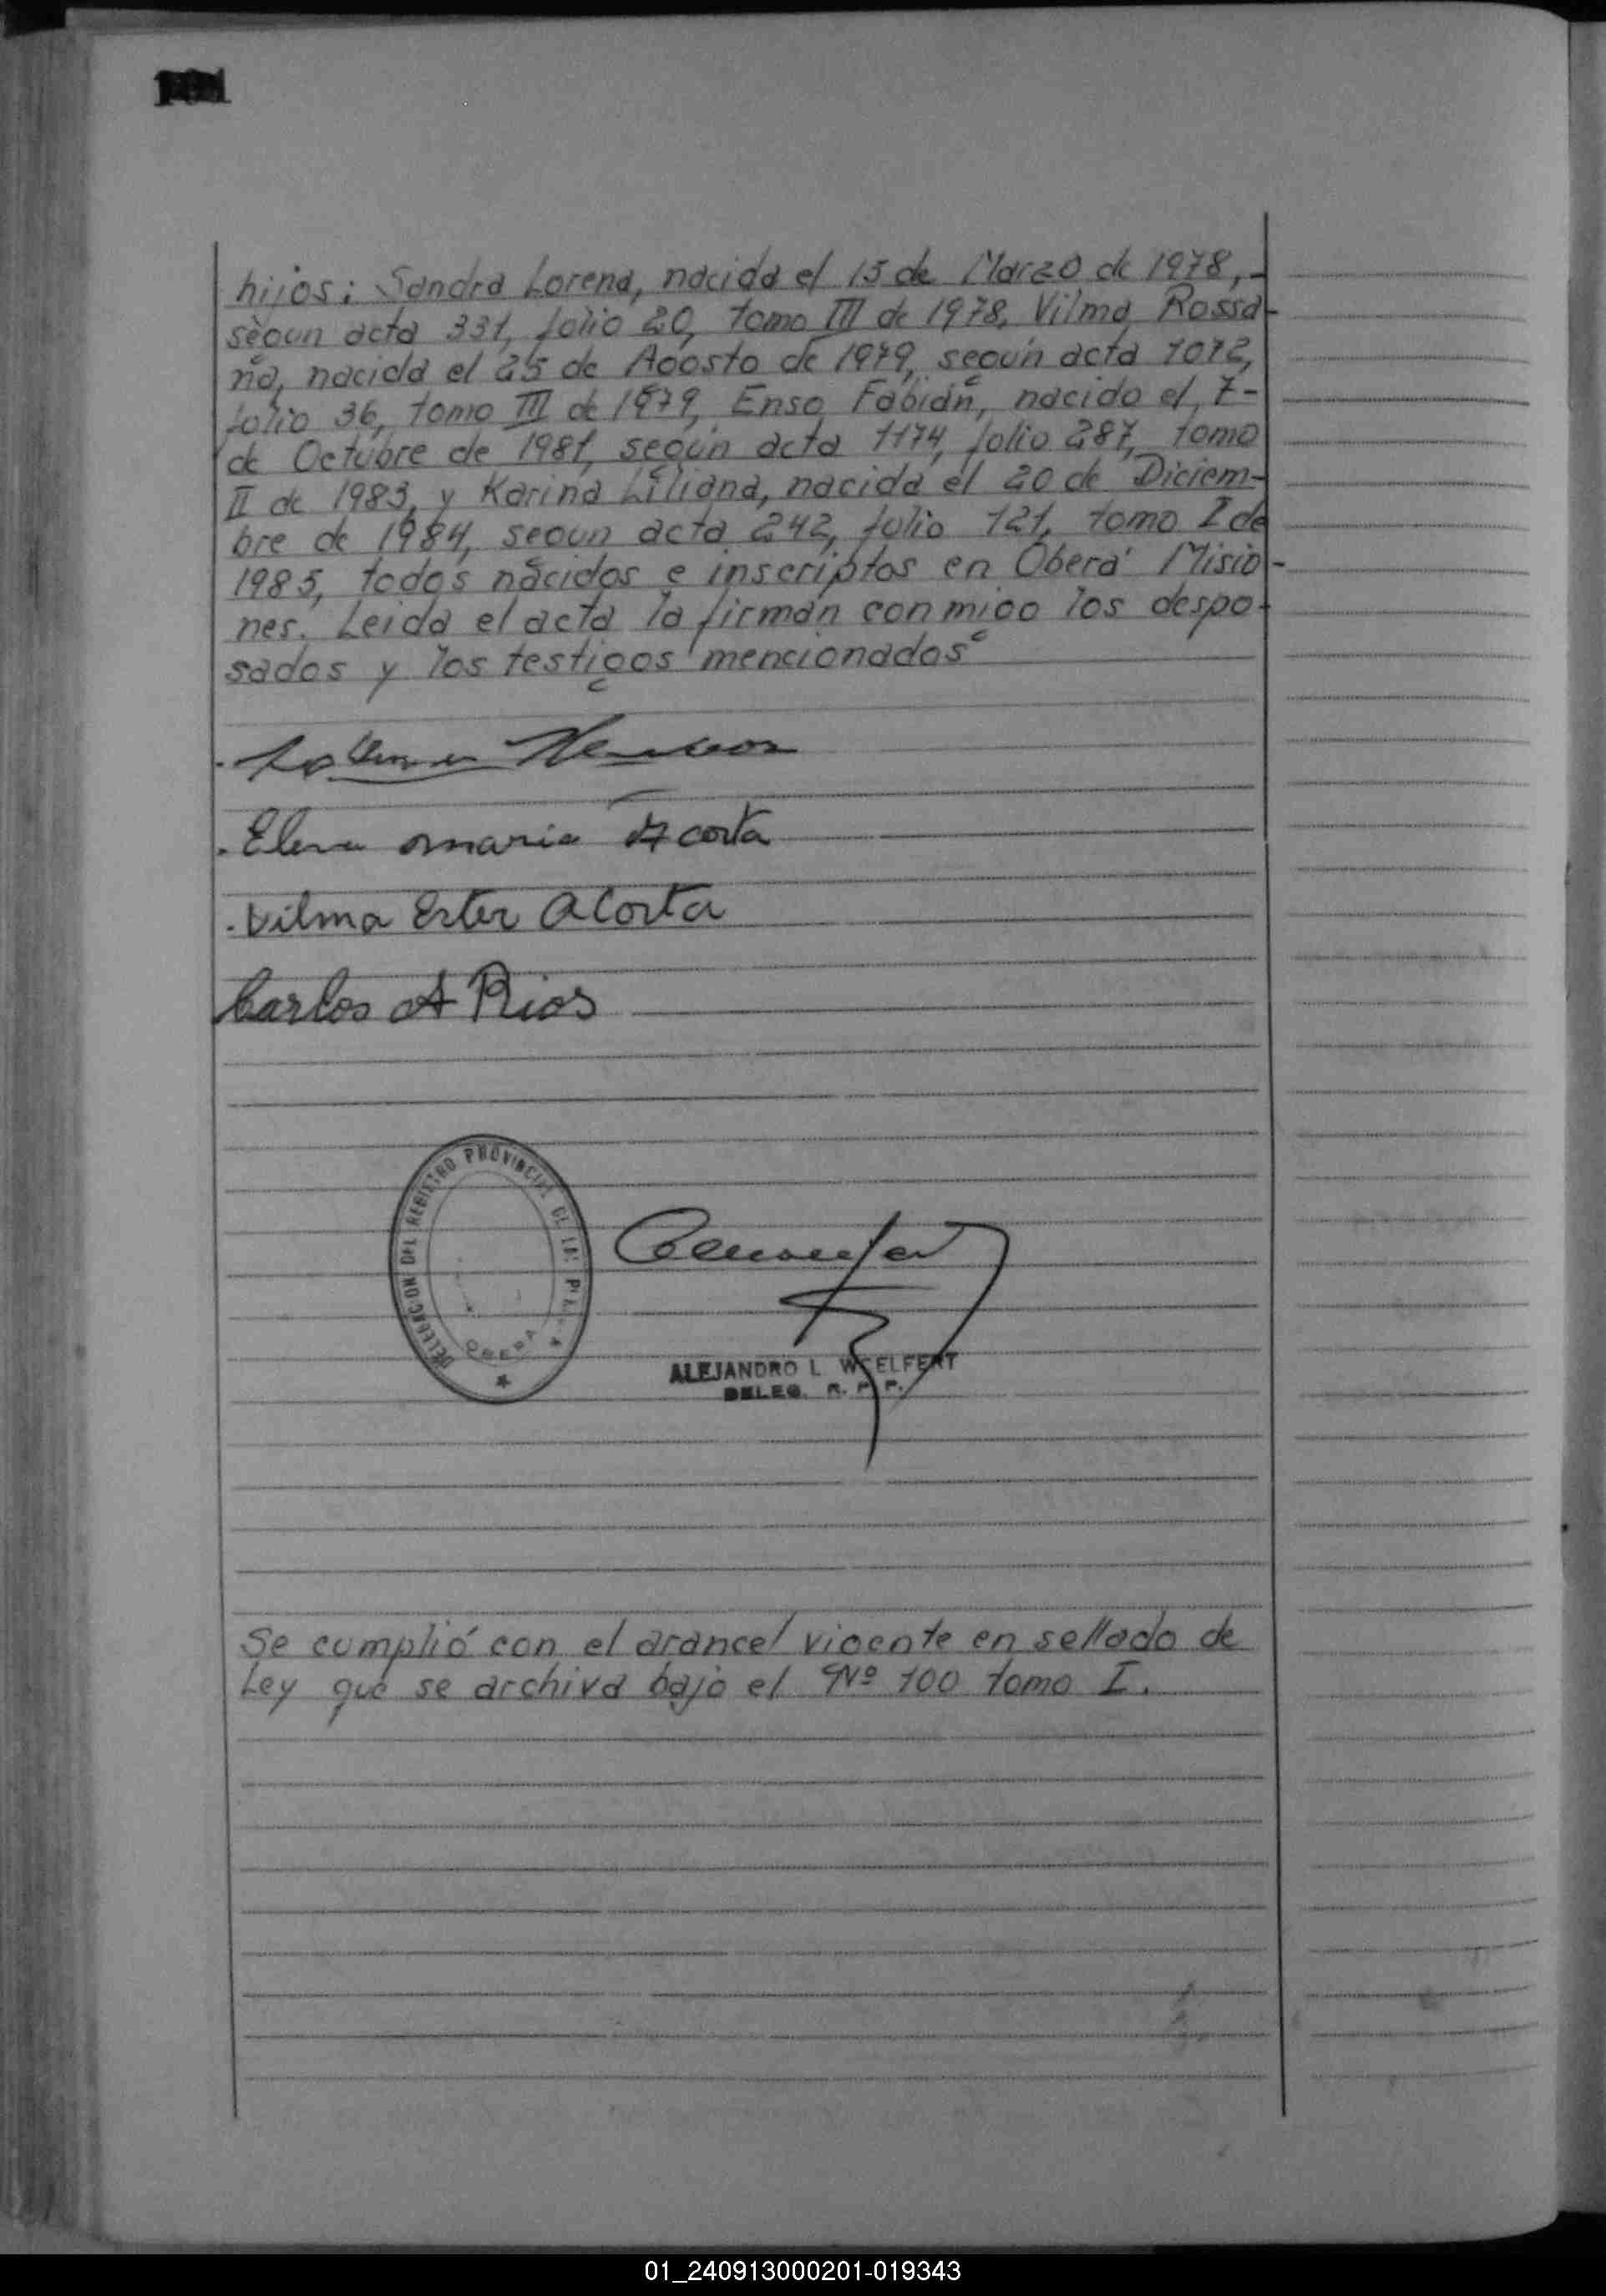 hijos: Sandra Lorena, nacida el 15 de Marzo de 1978,-
según acta 331, folio 20, tomo III de 1978, Vilma Rossa-
na, nacida el 25 de Agosto de 1979, según acta 1072,
folio 36, tomo III de 1979, Enso Fabián, nacido el 7-
de Octubre de 1981, según acta 1174, folio 287, tomo
II de 1983, y Karina Liliana, nacida el 20 de Diciem-
bre de 1984, segun acta 242, folio 121, tomo I de
1985, todos nacidos e inscriptos en Oberá Misio-
nes. Leida el acta la firman conmigo los despo-
sados y los testigos mencionados
Elena maria Acosta
Vilma Ester Acosta
Carlos A Rios
DELEGACION DEL REGISTRO PROVINCIAL DE LAS
OBERA
ALEJANDRO L WELFERT
DELEG. R. P. P.
Se cumplió con el arancel vigente en sellado de
Ley que se archiva bajo el Nº 100 tomo I.
01_240913000201-019343